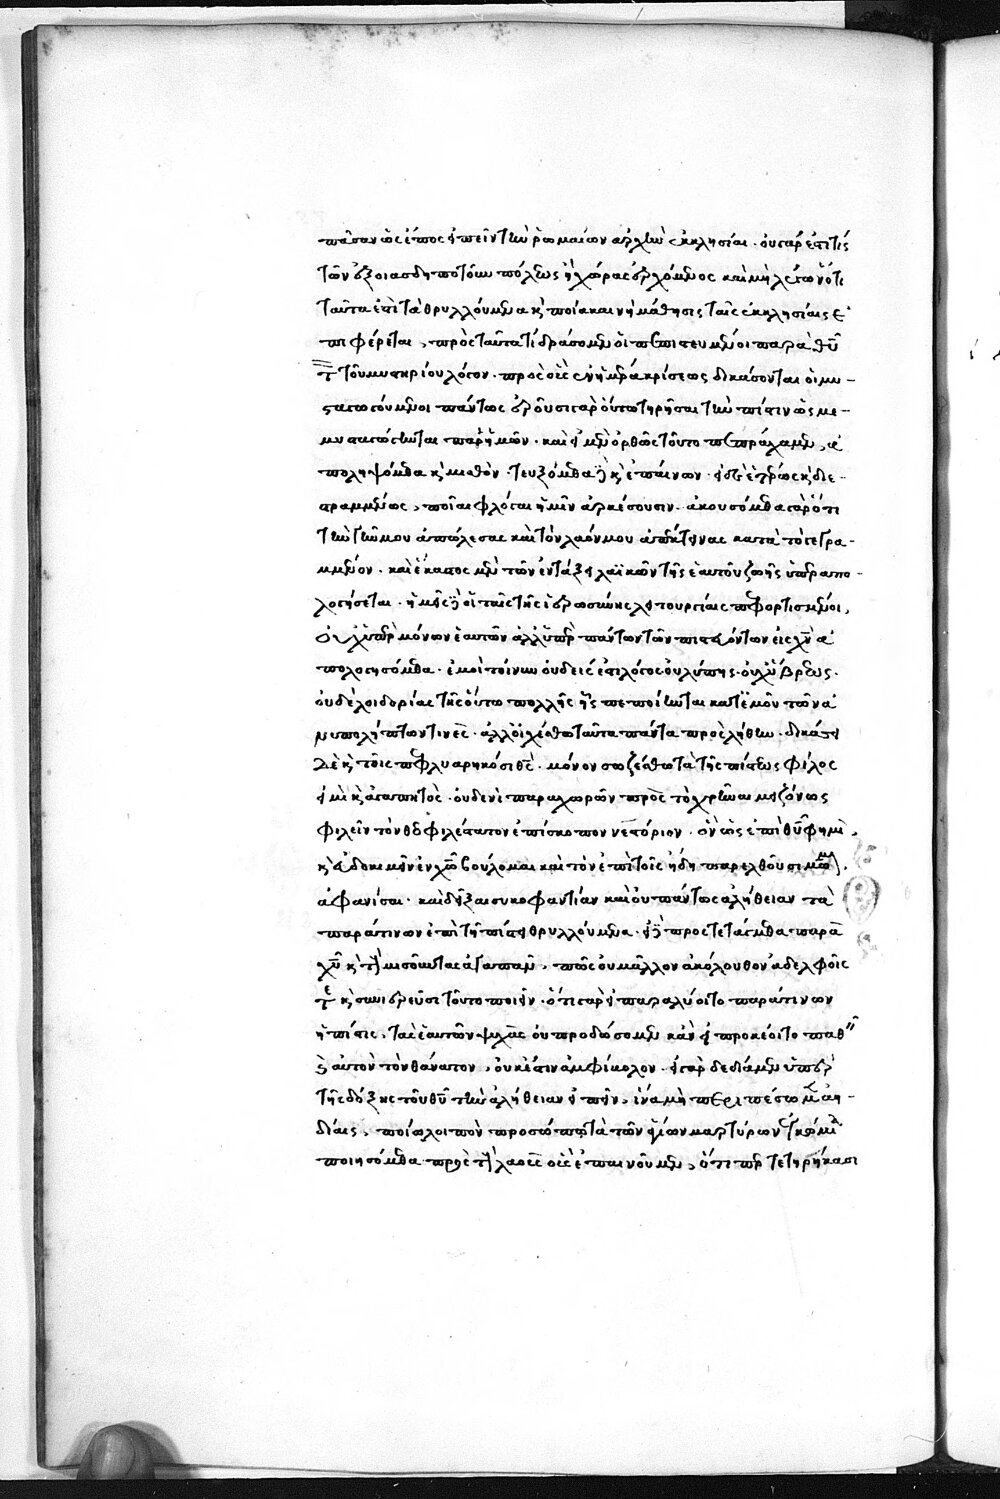 πᾶσαν ὡς ἔπος εἰπεῖν τὴν ῥωμαίων ἀρχὴν ἐκκλησίαι. οὐ γάρ ἐστί τις
τῶν ἐξ οἱασδηποτοῦν πόλεως ἢ χώρας ἐρχόμενος καὶ μὴ λέγων ὅτι
ταῦτα ἐπὶ τὰ θρυλλούμενα κ(αὶ) ποία καινὴ μάθησις ταῖς ἐκκλησίαις ἐ
πιφέρεται, πρὸς ταῦτα τί δράσομεν οἱ πεπιστευμένοι παρὰ θῡ
τὸν τοῦ μυστηρίου λόγον. πρὸς οἷς ἐν ἡμέρα κρίσεως δικάσονται οἱ μυ-
σταγωγούμενοι πάντως ἐροῦσι γὰρ οὕτω τηρῆσαι τὴν πίστιν ὡς με-
μυσταγώγηνται παρ' ἡμῶν. καὶ εἰ μὲν ὀρθῶς τοῦτο πεπράχαμεν, ἀ
ποληψόμεθα κ(αὶ) μισθὸν. τευξόμεθα δὲ κ(αὶ) ἐπαίνων. εἰ δὲ ἑτέρως κ(αὶ) διε-
στραμμένως, ποῖαι φλόγαι ἡμῖν ἀρκέσουσιν. ἀκουσόμεθα γὰρ ὅτι
τὴν γῆν μου ἀπώλεσας καὶ τὸν λαόν μου ἀπέκτεινας κατὰ τὸ γεγρα-
μμένον. καὶ ἕκαστος μὲν τῶν ἐν τάξει λαϊκῶν τῆς ἑαυτοῦ ζωῆς ὑπεραπο-
λογήσεται. ἡμεῖς δὲ οἱ ταῖς τῆς ἱερωσύνης λειτουργίαις πεφορτισμένοι,
οὐχ ὑπὲρ μόνων ἑαυτῶν ἀλλ' ὑπὲρ πάντων τῶν πιστευόντων εἰς χν̄ ἀ
πολογησόμεθα. ἐμοὶ τοίνυν οὐδεὶς ἔτι λόγος οὐ λύπης. οὐχ ὕβρεως.
οὐδὲ λοιδορίας τῆς οὕτω πολλῆς ἧς πεποίηνται κατ' ἐμοῦ τῶν ἀ
πολήπτων τινὲς. ἀλλ' οἰχέσθω ταῦτα πάντα πρὸς λήθην. δικάσει
δὲ κ(αὶ) τοῖς πεφλυαρηκόσι θς̄. μόνον σωζέσθω τὰ τῆς πίστεως φίλος
εἰμὶ κ(αὶ) ἀγαπητὸς. οὐδενὶ παραχωρῶν πρὸς τὸ χρῆναι μειζόνως
φιλεῖν τὸν θεοφιλέστατον ἐπίσκοπον νεστόριον. ὃν ὡς ἐπὶ θῡ φημὶ.
κ(αὶ) εὐδοκιμεῖν ἐν χω̄ βούλομαι καὶ τὸν ἐπὶ τοῖς ἤδη παρελθοῦσι μῶμον
ἀφανίσαι. καὶ δεῖξαι συκοφαντίαν καὶ οὐ πάντως ἀλήθειαν τὰ
παρά τινων ἐπὶ τῇ πίστει θρυλλούμενα. εἰ δὲ προστετάγμεθα παρὰ
χῡ κ(αὶ) τοὺς μισοῦντας ἀγαπᾶν, πῶς οὐ μᾶλλον ἀκόλουθον ἀδελφοῖς
τε κ(αὶ) συνιερεῦσι τοῦτο ποιεῖν. ὅτι γὰρ εἰ παραλύοιτο παρά τινων
ἡ πίστις, τὰς ἑαυτῶν ψυχὰς οὐ προδώσομεν κἂν εἰ προκέοιτο παθεῖν
ἐπ' αὐτὸν τὸν θάνατον, οὐκ ἔστιν ἀμφίβολον. εἰ γὰρ δεδιάμεν ὑπὲρ
τῆς δόξης τοῦ θῡ τὴν ἀλήθειαν εἰπεῖν, ἵνα μὴ περιπέσωμεν ἀη-
δίαις, ποίω λοιπὸν προσώπω τὰ τῶν ἁγίων μαρτύρων ἐγκώμια
ποιησόμεθα πρὸς τοὺς λαοὺς οἷς ἐπαινοῦμεν, ὅτι περ τετηρήκασι